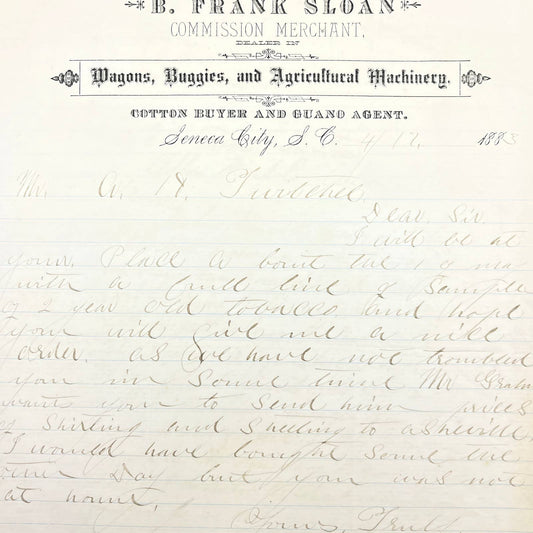 B. FRANK SLOAN
COMMISSION MERCHANT,
DEALER IN
Wagons, Buggies, and Agricultural Machinery.
COTTON BUYER AND GUANO AGENT.
Seneca City, S. C. 4/12. 1883
Mr. A. H. Twitchell
Dear, Sir.
I will be at
your. Place a bout the 1 of may
with a full line of Sample
of 2 year old tobacco. and hope
your will Give me a
order. as we have not troubled
you in Some time Mr
want you to Send him prices
of Shirting and to asheville.
I would have bought Some the
other Day but your was not
at home,
Yours, Truly